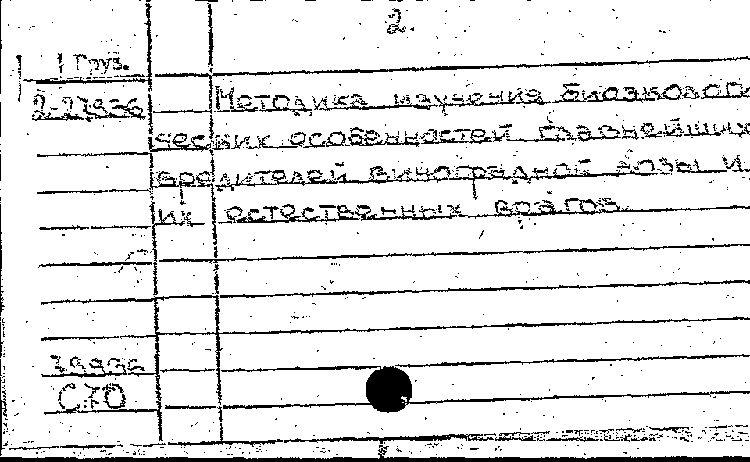 2.
Груз.
2-27936
Методика изучения биоэкологи
ческих особенностей главнейших
вредителей виноградной лозы и
их естественных врагов.
С70